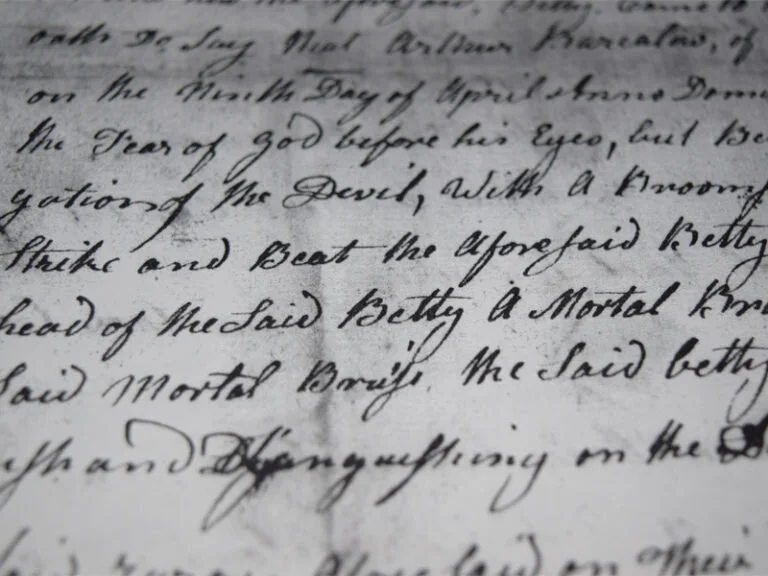 the aforesaid, Betty. Came to
oath Do Say that Arthur Barcalow, of
on the Ninth Day of April Anno Domi
the Fear of God before his Eyes, but Be
gation of the Devil, With A Broom
Strike and Beat the Aforesaid Betty
head of the Said Betty A Mortal Bru
Said Mortal Bruise the Said betty
ish and Languishing on the
on Their